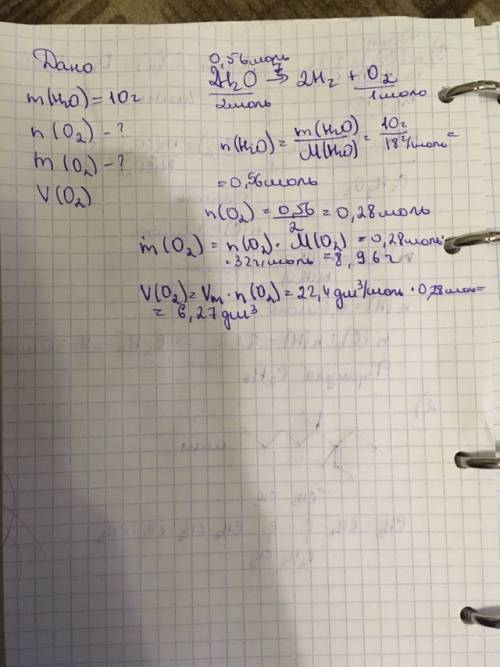 Дано
m(H₂O) = 10г
n(O₂) - ?
m(O₂) - ?
V(O₂)
0,56моль
2H₂O → 2H₂ + O₂
2моль 1моль
n(H₂O) = m(H₂O)/M(H₂O) = 10г/18г/моль =
= 0,56моль
n(O₂) = 0,56/2 = 0,28моль
m(O₂) = n(O₂) · M(O₂) = 0,28моль·
·32г/моль = 8,96г
V(O₂) = Vm · n(O₂) = 22,4дм³/моль · 0,28моль=
= 6,27дм³